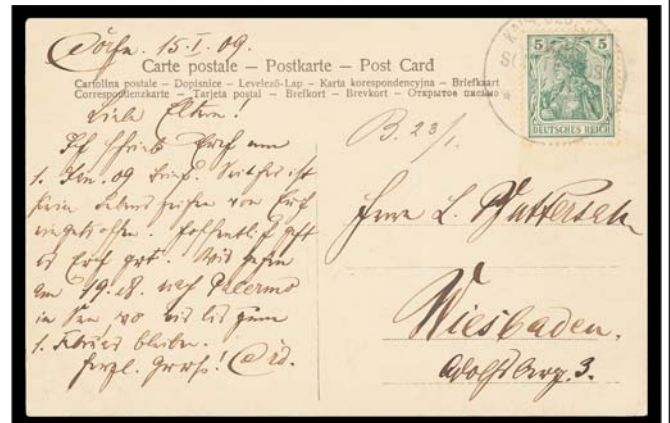 15.I.09.
Carte postale – Postkarte – Post Card
Cartolina postale – Dopisnice – Levelező-Lap – Karta korespondencyjna – Briefkaart
Correspondenzkarte – Tarjeta postal – Brefkort – Brevkort – Открытое письмо
Liebe Eltern!
Ich schrieb Euch am
1. Jan. 09 Brief. Seither ist
kein Lebenszeichen von Euch
eingetroffen. Hoffentlich geht
es Euch gut. Wir gehen
am 19.28. nach Palermo
in See, wo wir bis zum
1. Februar bleiben.
herzl. Gruß!
5 5
DEUTSCHES REICH
B. 23/1.
Herrn L.
Wiesbaden.
Adolfsberg. 3.